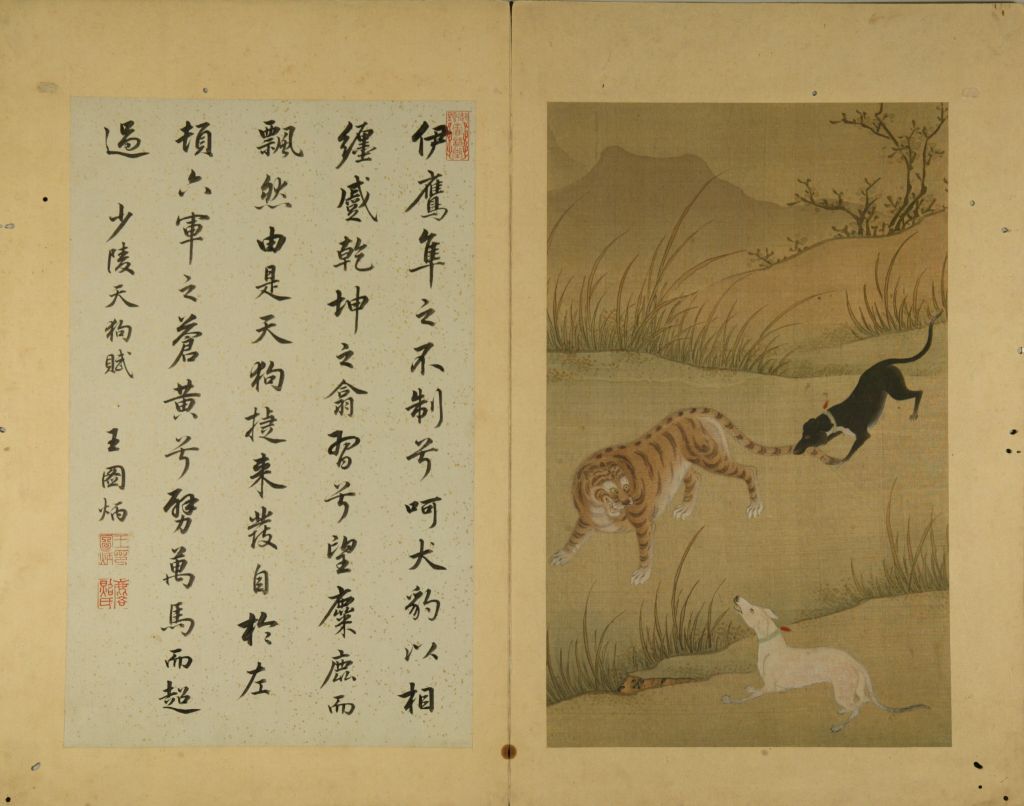 伊鷹隼之不制兮呵犬豹以相
纏蹙乾坤之翕習兮望麋鹿而
飄然由是天狗捷来發自於左
頓六軍之蒼黄兮劈萬馬而超
過 少陵天狗賦 王圖炳